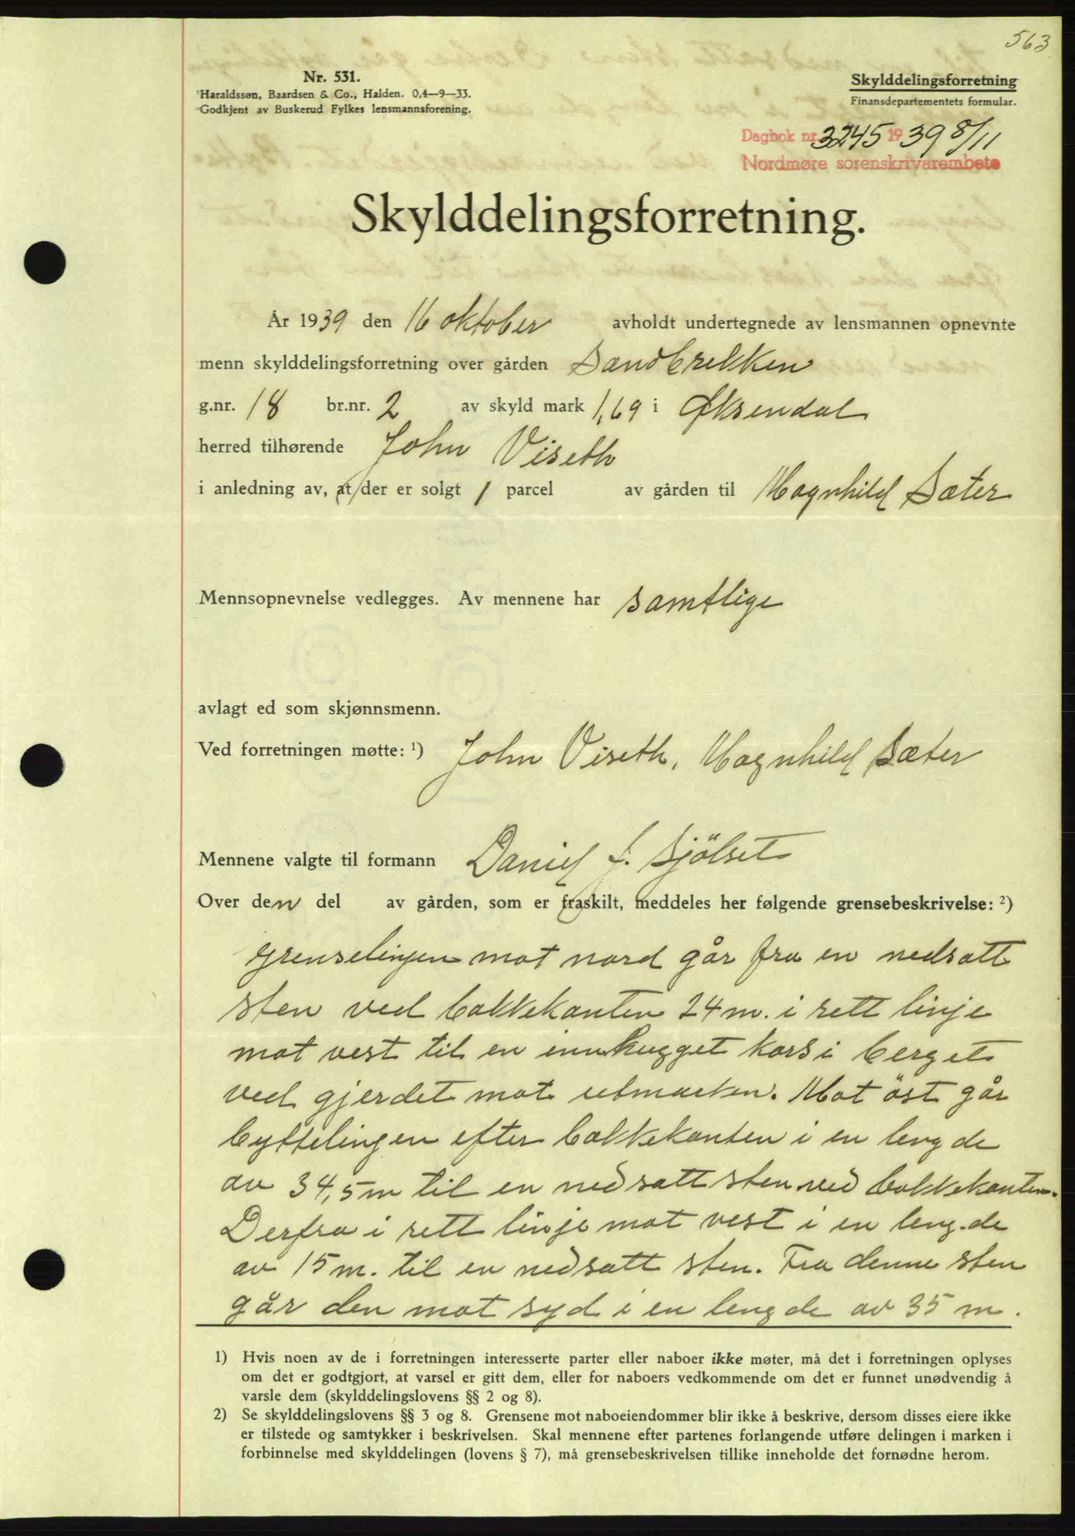 563
Nr. 531.
Haraldssøn, Baardsen & Co., Halden. 0,4—9—33.
Godkjent av Buskerud Fylkes lensmannsforening.
Skylddelingsforretning
Finansdepartementets formular.
Dagbok nr. 3245 1939 8/11
Nordmøre sorenskrivarembete
Skylddelingsforretning.
År 1939 den 16 oktober avholdt undertegnede av lensmannen opnevnte
menn skylddelingsforretning over gården Sandbrekken
g.nr. 18 br.nr. 2 av skyld mark 1,69 i Øksendal
herred tilhørende John Viseth
i anledning av, at der er solgt 1 parcel av gården til Magnhild Sæter
Mennsopnevnelse vedlegges. Av mennene har samtlige
avlagt ed som skjønnsmenn.
Ved forretningen møtte: ¹) John Viseth, Magnhild Sæter
Mennene valgte til formann Daniel J. Sjölset
Over den del av gården, som er fraskilt, meddeles her følgende grensebeskrivelse: ²)
Grenselinjen mot nord går fra en nedsatt
sten ved bakkekanten 24 m. i rett linje
mot vest til en innhugget kors i berget
ved gjerdet mot utmarken. Mot öst går
byttelingen efter bakkekanten i en lengde
av 34,5 m til en nedsatt sten ved bakkekanten.
Derfra i rett linje mot vest i en lengde
av 15 m. til en nedsatt sten. Fra denne sten
går den mot syd i en lengde av 35 m.
1) Hvis noen av de i forretningen interesserte parter eller naboer ikke møter, må det i forretningen oplyses
om det er godtgjort, at varsel er gitt dem, eller for naboers vedkommende om det er funnet unødvendig å
varsle dem (skylddelingslovens §§ 2 og 8).
2) Se skylddelingslovens §§ 3 og 8. Grensene mot naboeiendommer blir ikke å beskrive, dersom disses eiere ikke
er tilstede og samtykker i beskrivelsen. Skal mennene efter partenes forlangende utføre delingen i marken i
forbinnelse med skylddelingen (lovens § 7), må grensebeskrivelsen tillike inneholde det fornødne herom.